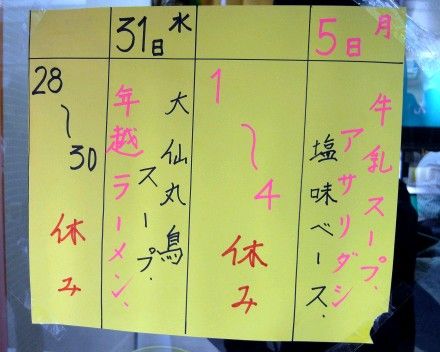 28
〜
30
休み
31日 水
大仙丸鳥
スープ.
年越ラーメン、
1
〜
4
休み
5日 月
牛乳スープ、
アサリダシ
塩味ベース.